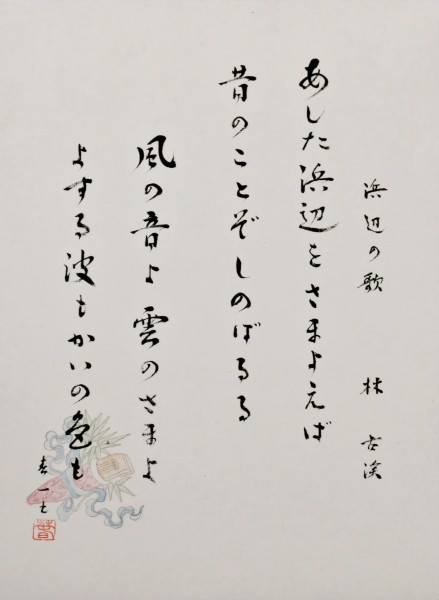 浜辺の歌 林 古溪
あした浜辺をさまよえば
昔のことぞしのばるる
風の音よ雲のさまよ
よする波もかいの色も